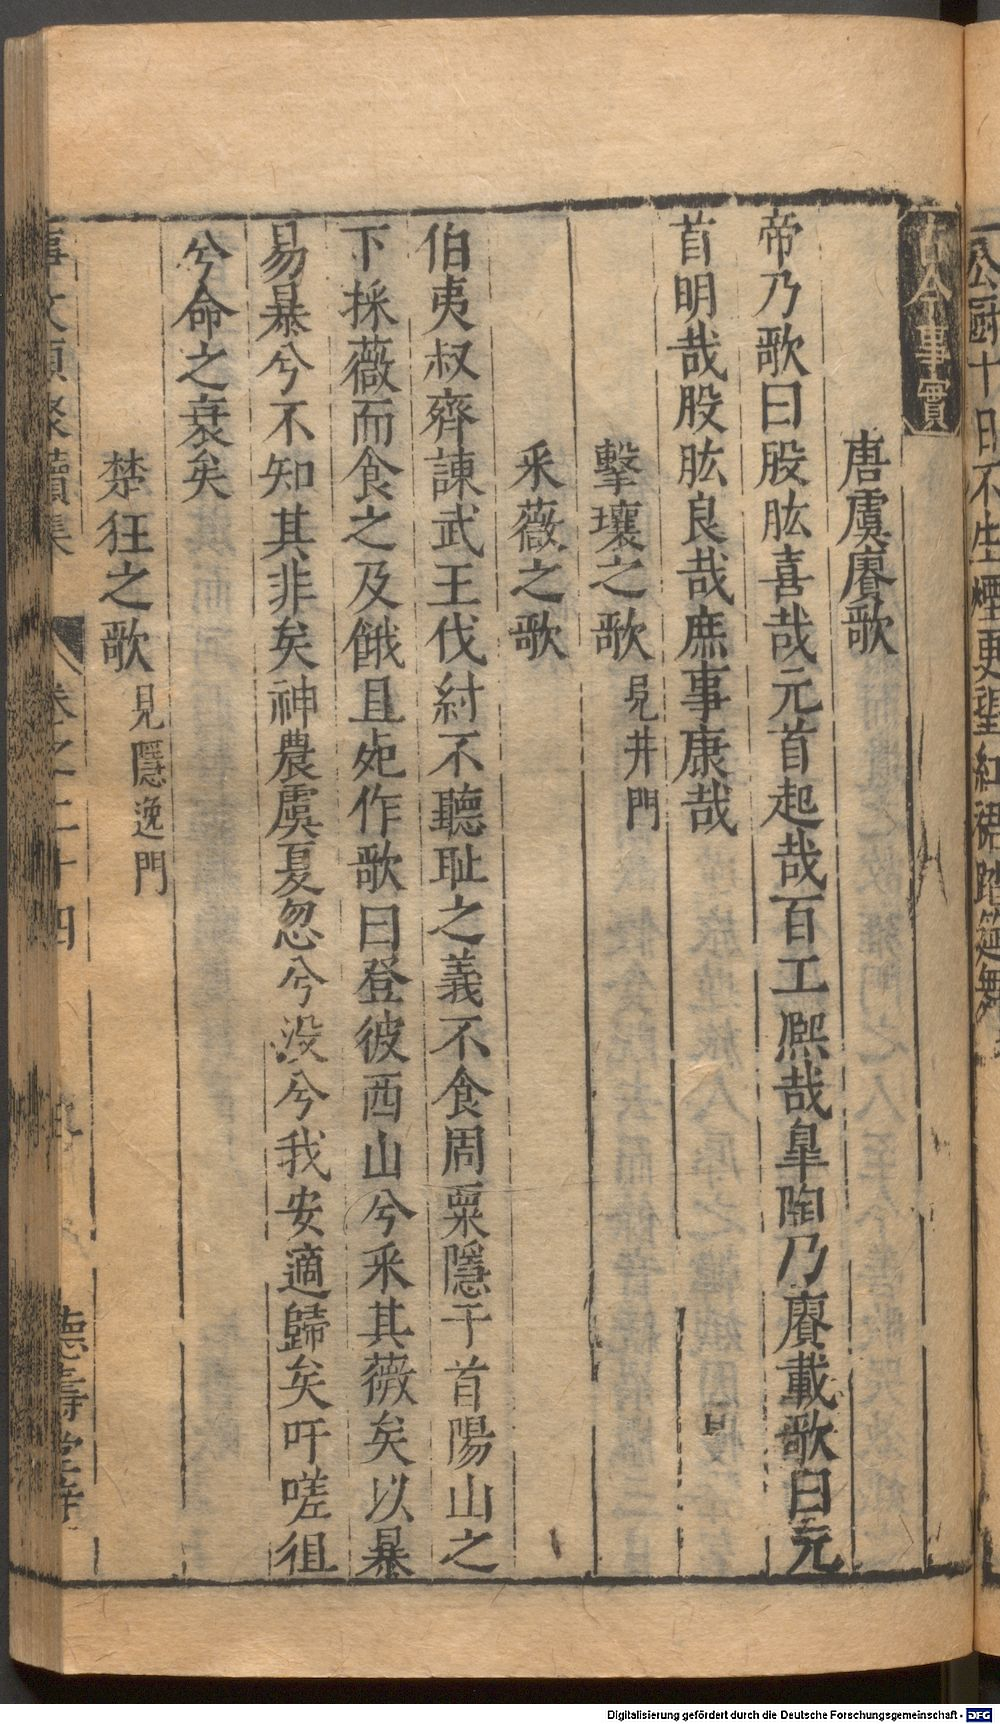 古今事實
唐虞賡歌
帝乃歌曰股肱喜哉元首起哉百工熈哉臯陶乃賡載歌曰元
首明哉股肱良哉庶事康哉
擊壤之歌 見井門
采薇之歌
伯夷叔齊諫武王伐紂不聽耻之義不食周粟隱于首陽山之
下採薇而食之及餓且死作歌曰登彼西山兮采其薇矣以暴
易暴兮不知其非矣神農虞夏忽兮没兮我安適歸矣吁嗟徂
兮命之衰矣
楚狂之歌 見隱逸門
事文類聚續集 卷之二十四
德壽堂梓
公厨十日不生煙更望紅裙踏筵舞
Digitalisierung gefördert durch die Deutsche Forschungsgemeinschaft - DFG